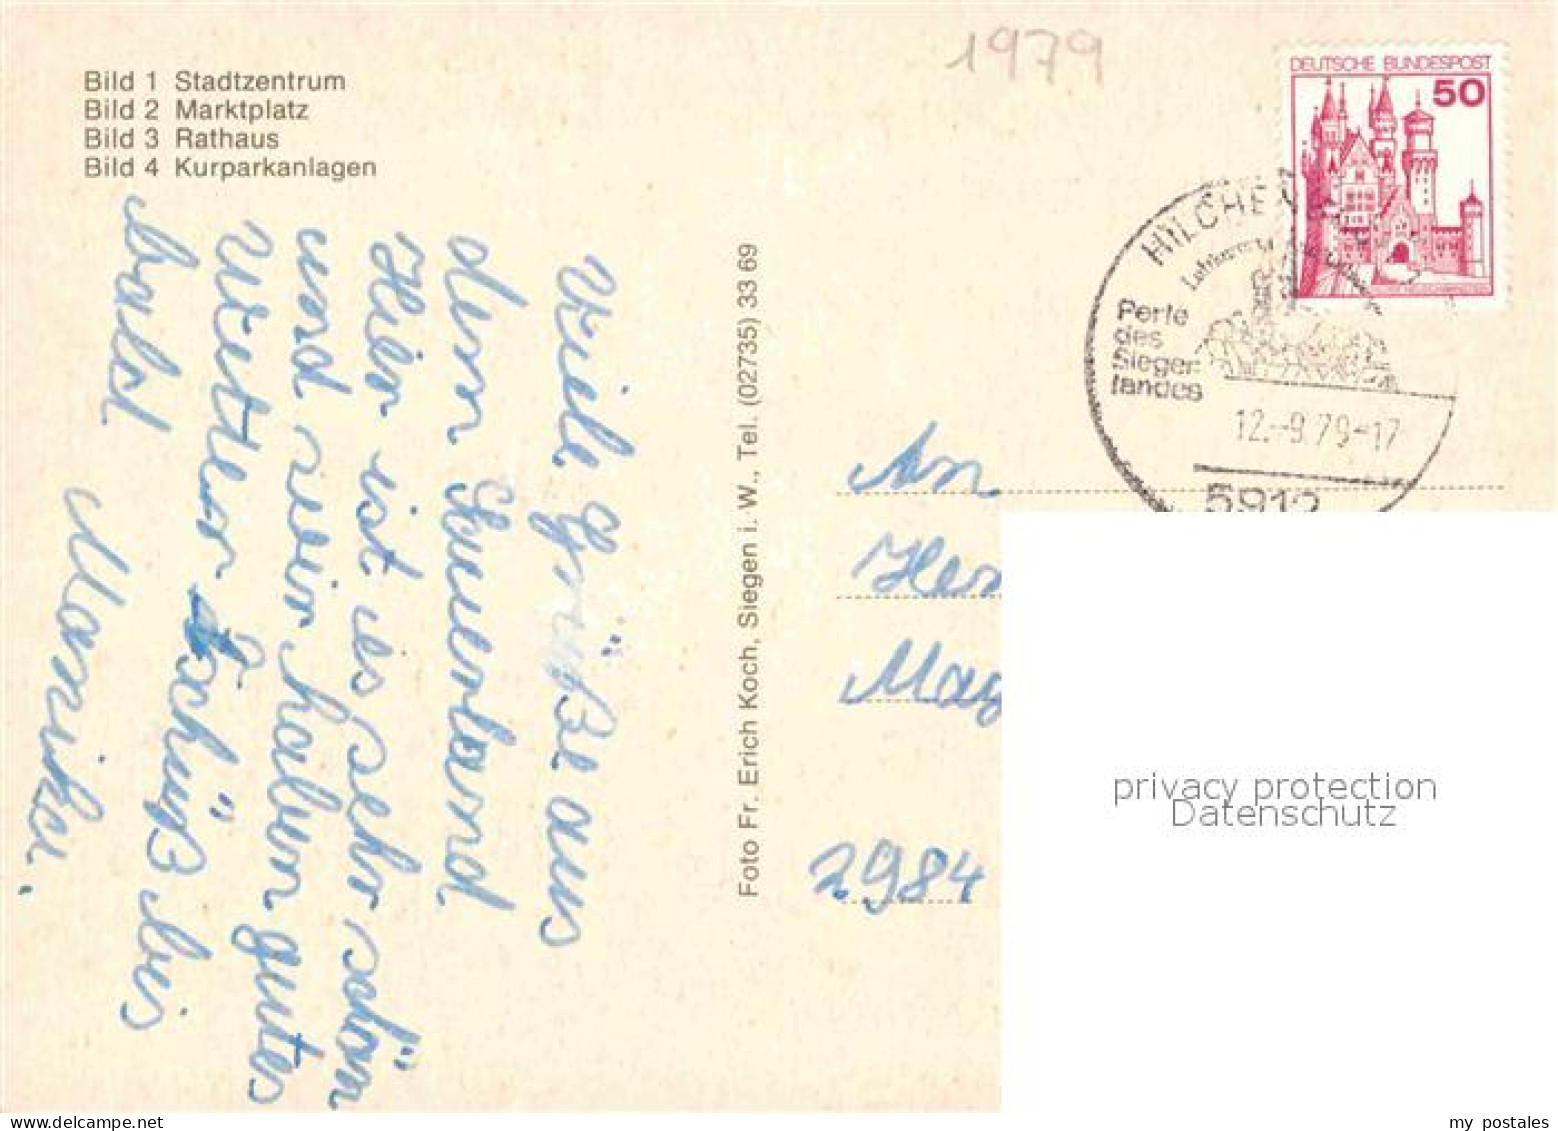 Bild 1 Stadtzentrum
Bild 2 Marktplatz
Bild 3 Rathaus
Bild 4 Kurparkanlagen
Viele Grüße aus
dem Sauerland
Hier ist es sehr schön
und wir haben gutes
Wetter Tschüß bis
bald Monika.
Foto Fr. Erich Koch, Siegen i. W., Tel. (02735) 33 69
1979
DEUTSCHE BUNDESPOST
50
HILCHE
Perle
des
Sieger-
landes
12.-9.79-17
5912
An
Her
May
2984
privacy protection
Datenschutz
my postales